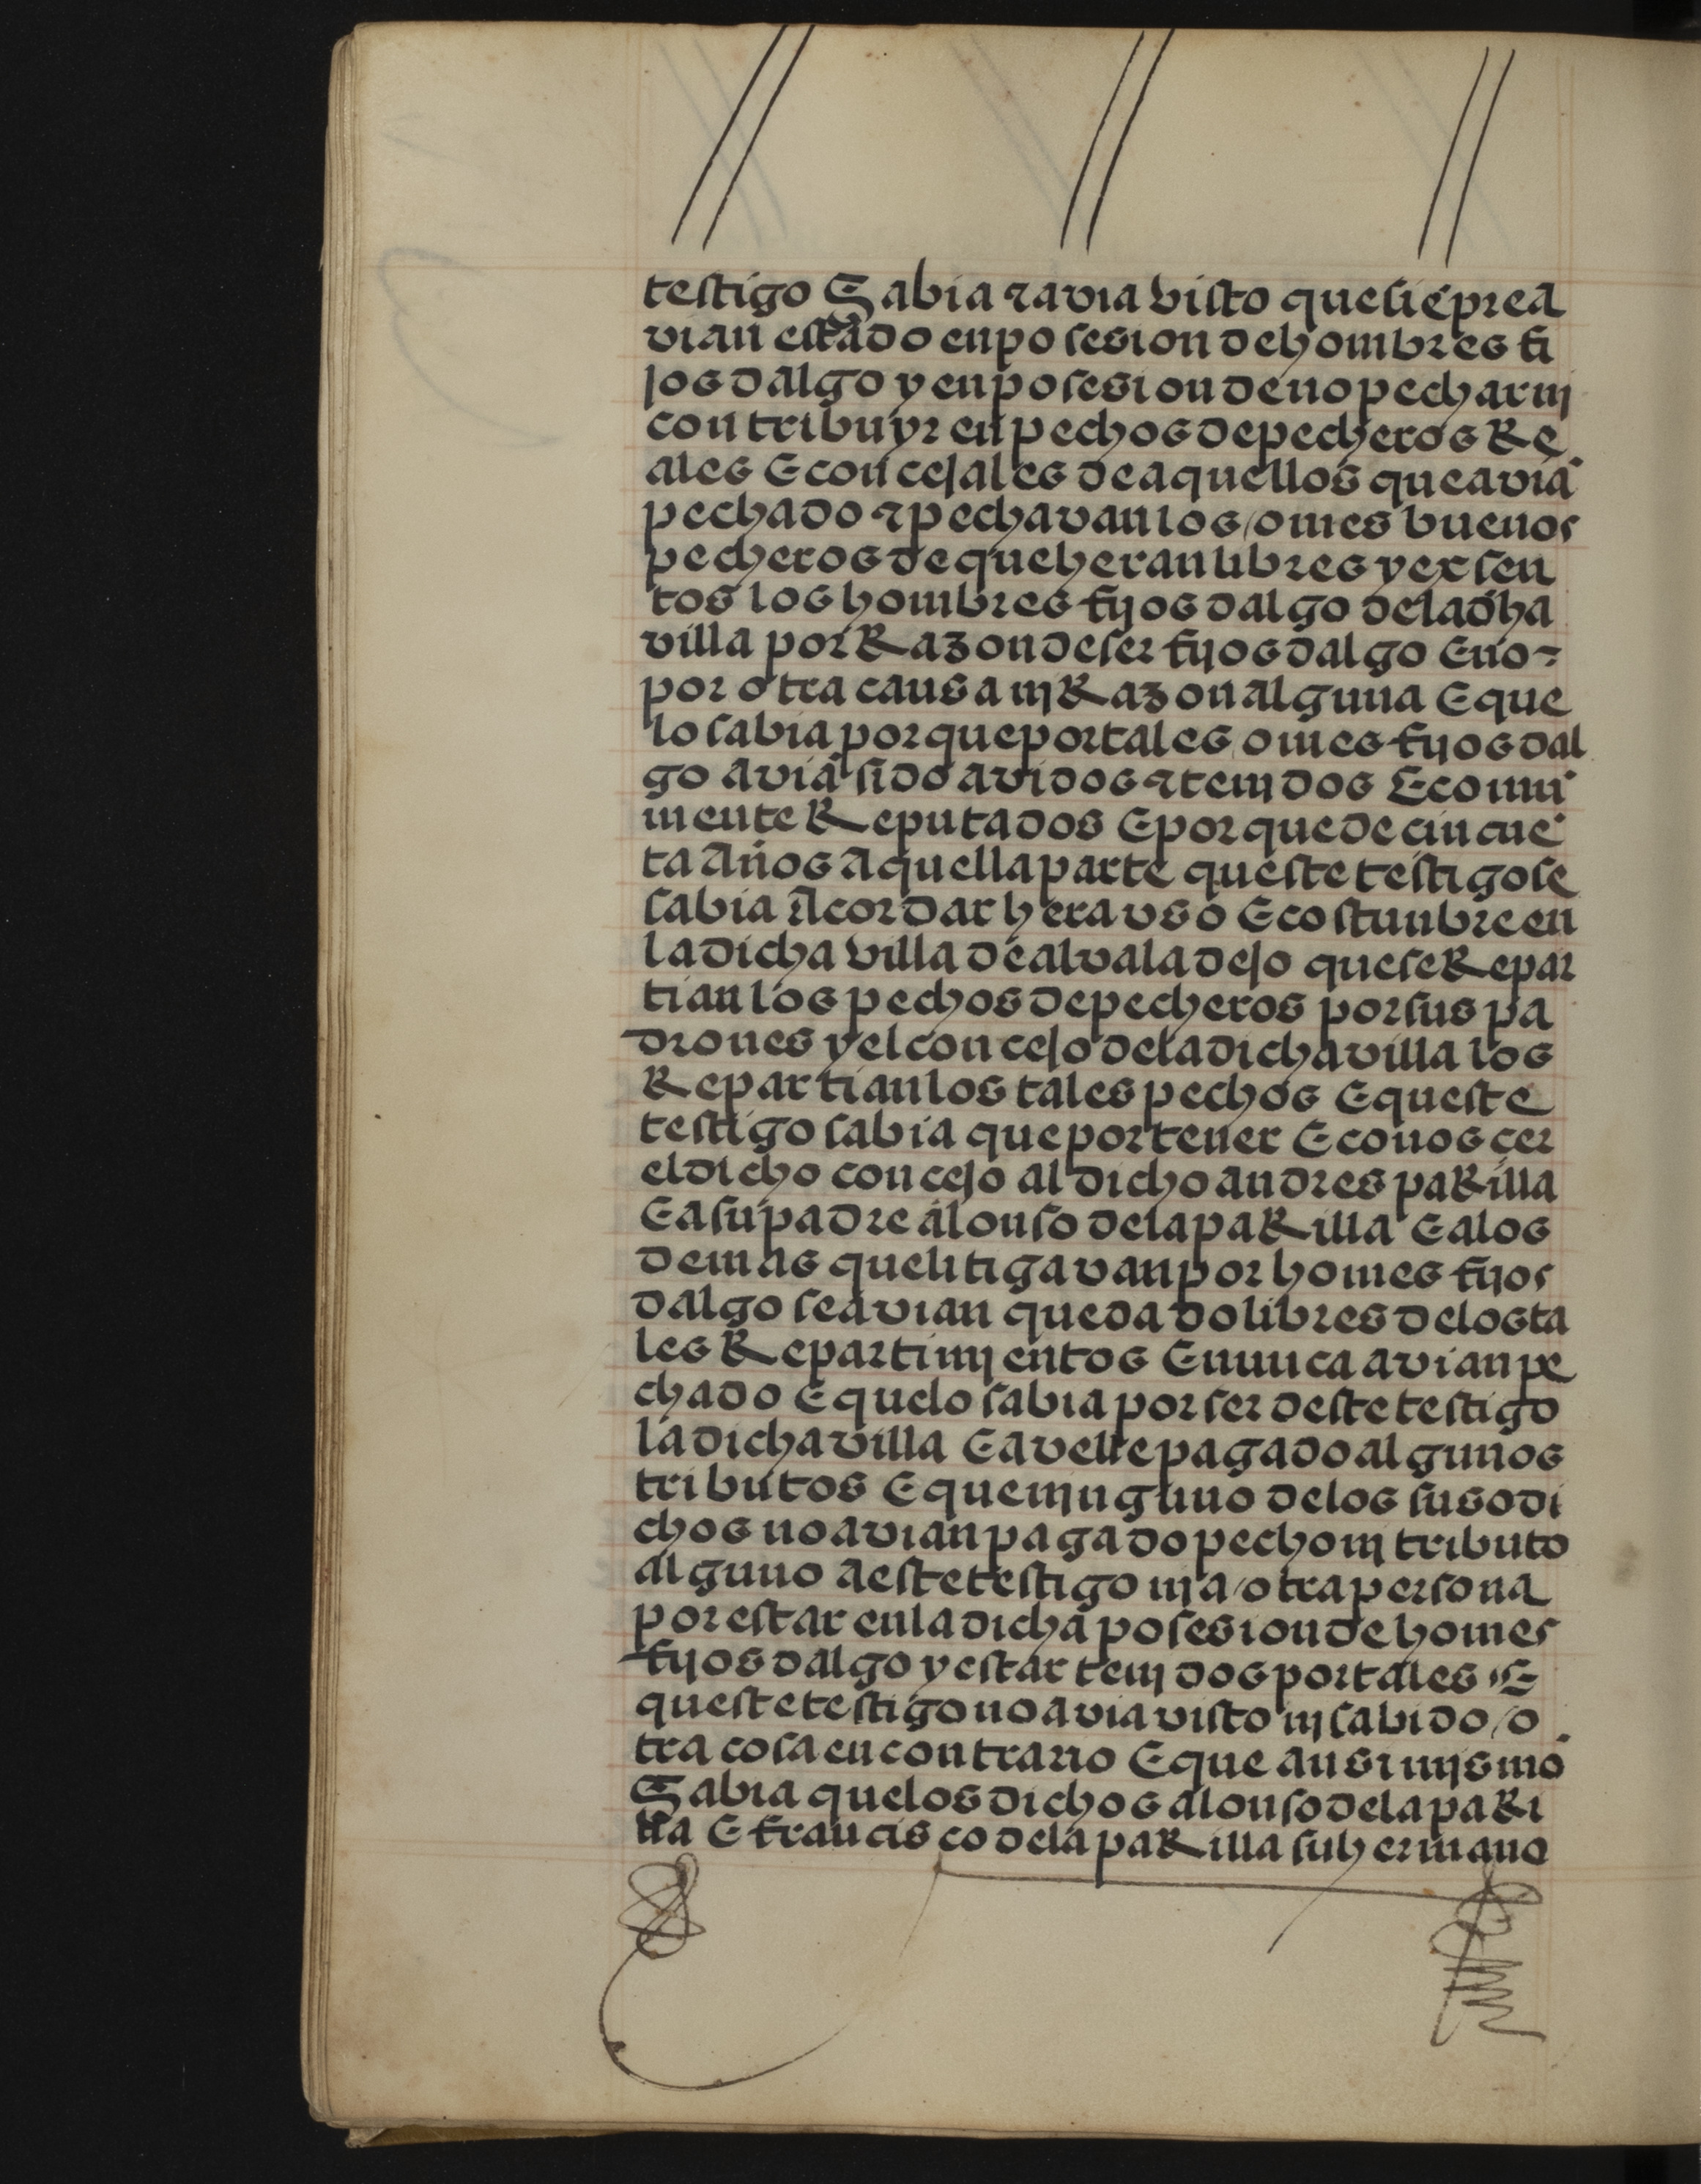 testigo Sabia ⁊ avia visto que siẽpre a
vian estado en posesion de hombres fi
jos dalgo y en posesion de no pechar nj
contribuyr en pechos de pecheros Re
ales E concejales de aquellos que aviã
pechado ⁊ pechavan los /omes buenos
pecheros de que heran libres y exsen
tos los hombres fijos dalgo de la dha
villa por Razon de ser fijos dalgo E no-
por otra causa nj Razon alguna E que
lo sabia porque por tales omes fijos dal
go aviã sido avidos ⁊ tenjdos E comũ
mente Reputados E por que de cincuẽ
ta Años A quella parte queste testigo se
sabia Acordar hera vso E costunbre en
la dicha villa de alvaladejo que se Repar
tian los pechos de pecheros por sus pa
drones y el concejo de la dicha villa los
Repartian los tales pechos E queste
testigo sabia que por tener E conoscer
el dicho concejo al dicho andres paRilla
E a su padre alonso de la paRilla E a los
demas que litigavan por homes fijos
dalgo se avian quedado libres de los ta
les Repartimjentos E nunca avian pe
chado E que lo sabia por ser deste testigo
la dicha villa E avelle pagado algunos
tributos E que njnguno de los susodi
chos no avian pagado pecho nj tributo
alguno A este testigo nj a /otra persona
por estar en la dicha posesion de homes
fijos dalgo y estar tenjdos por tales E
queste testigo no avia visto nj sabido /o
tra cosa en contrario E que ansi mjsmo
Sabia que los dichos alonso de la paRi
lla E francisco de la paRilla su hermano